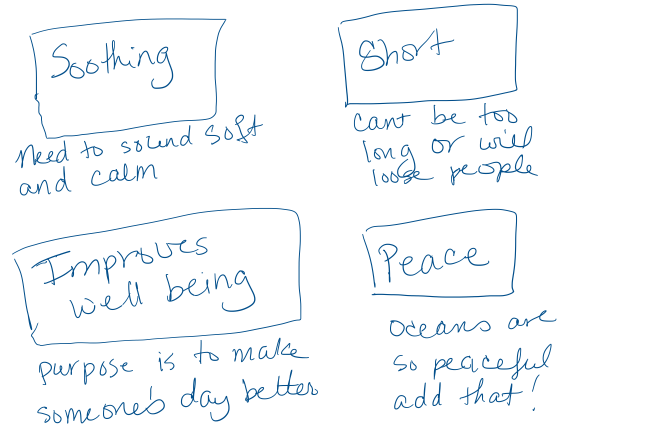 Soothing
Need to sound soft
and calm
Short
cant be too
long or will
loose people
Improves
well being
purpose is to make
someone's day better
Peace
oceans are
so peaceful
add that!